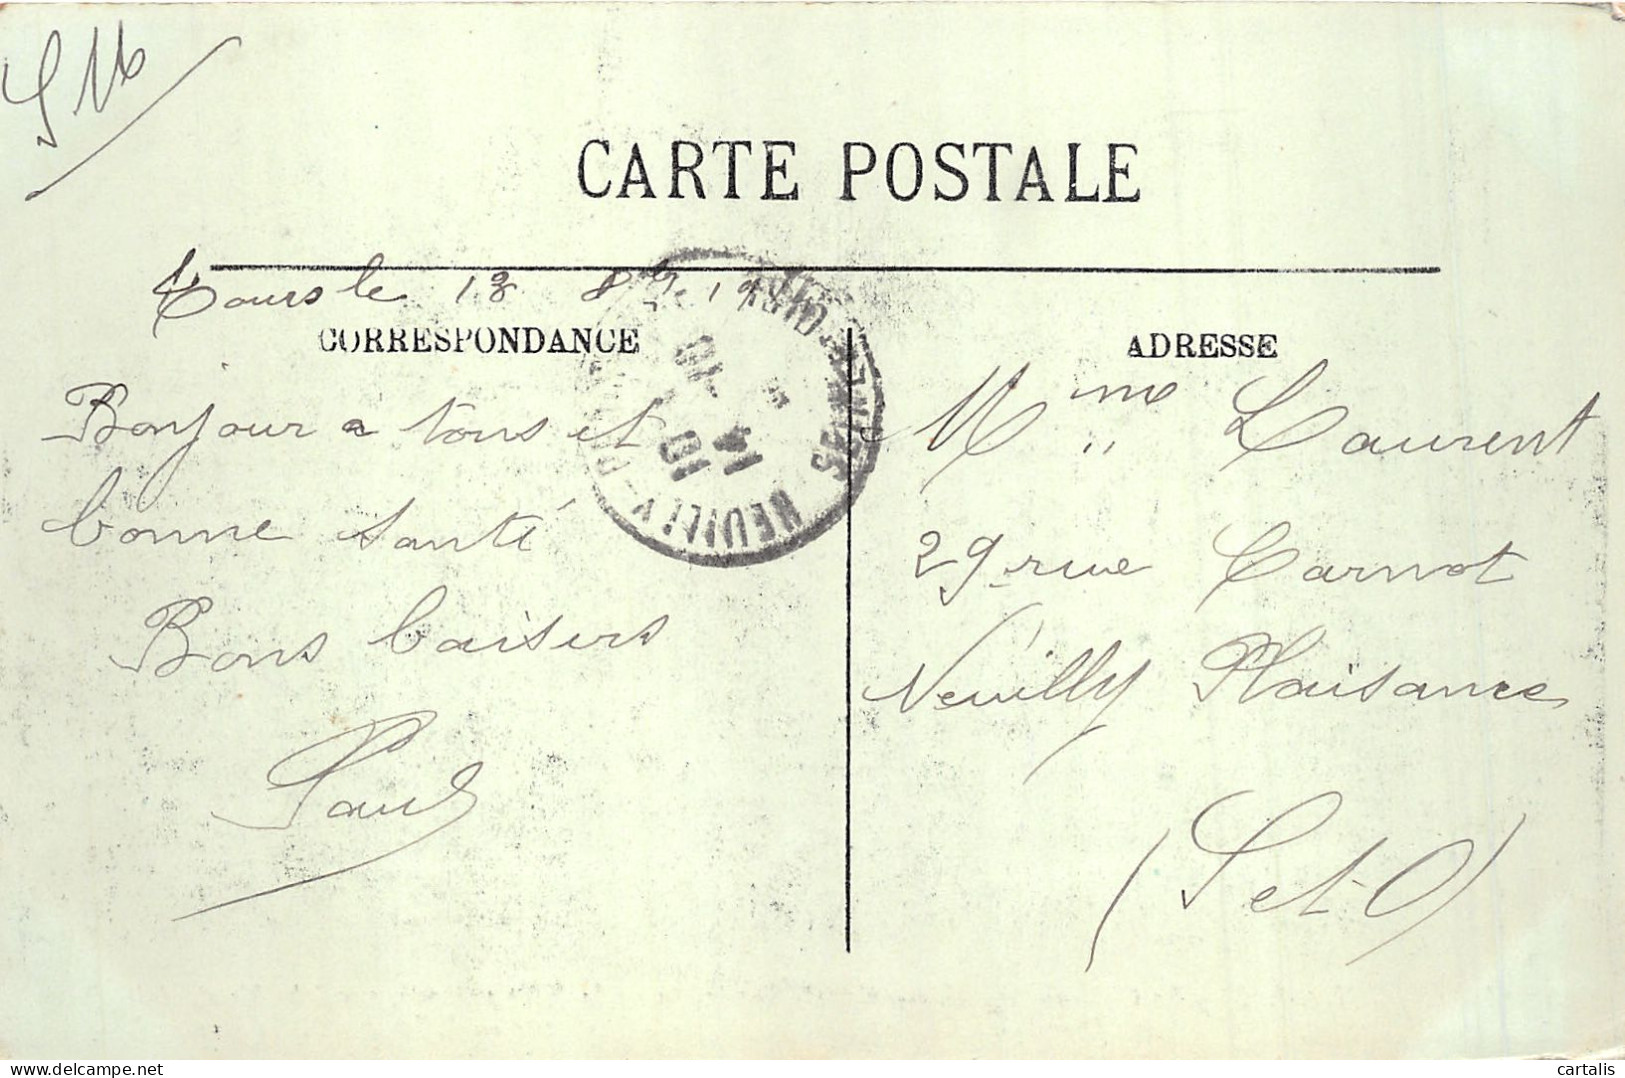 S M
CARTE POSTALE
Tours le 13 8bre 1910
CORRESPONDANCE
Bonjour a tous et
bonne santé
Bons baisers
Paul
NEUILLY-
14
10
10
ADRESSE
Mme Laurent
29 rue Carnot
Neuilly Plaisance
(S et-O)
delcampe.net
cartalis